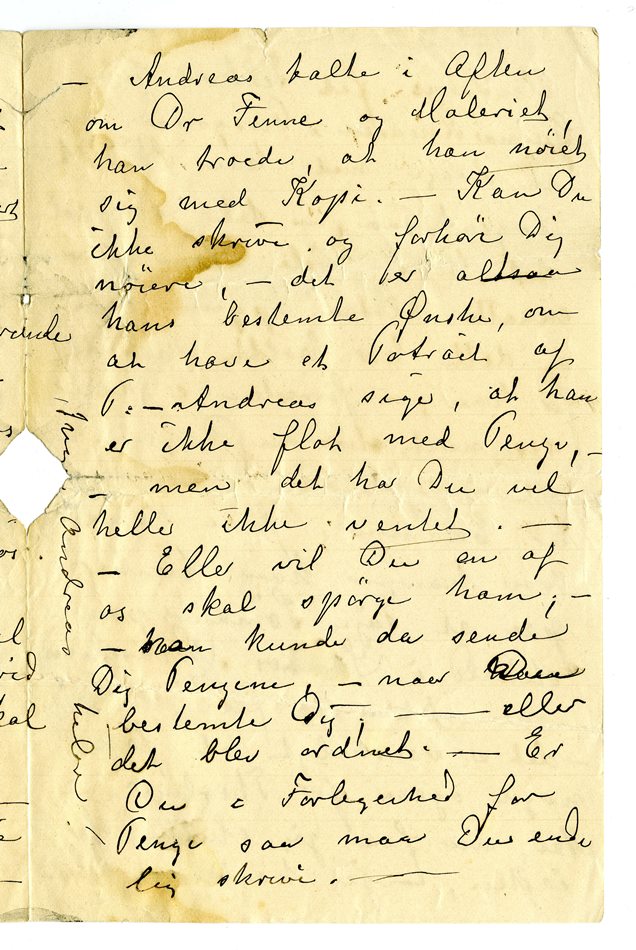 – Andreas talte i Aften
om Dr Fenne og Maleriet,
han troede, at han nøiet
sig med Kopi. – Kan Du
ikke skrive og forhøre Dig
nøiere, – det er altsaa
hans bestemte Ønske, om
at have et Portræt af
P: – Andreas sige, at han
er ikke flot med Penge, –
– men det ha Du vel
heller ikke ventet. –
– Eller vil Du en af
os skal spörge ham; –
– han kunde da sende
Dig Pengene, – naar Du
bestemte Dig, – eller
det blev ordnet. – Er
Du i Forlegenhed for
Penge saa maa Du ende
lig skrive. –
Andreas hilser.